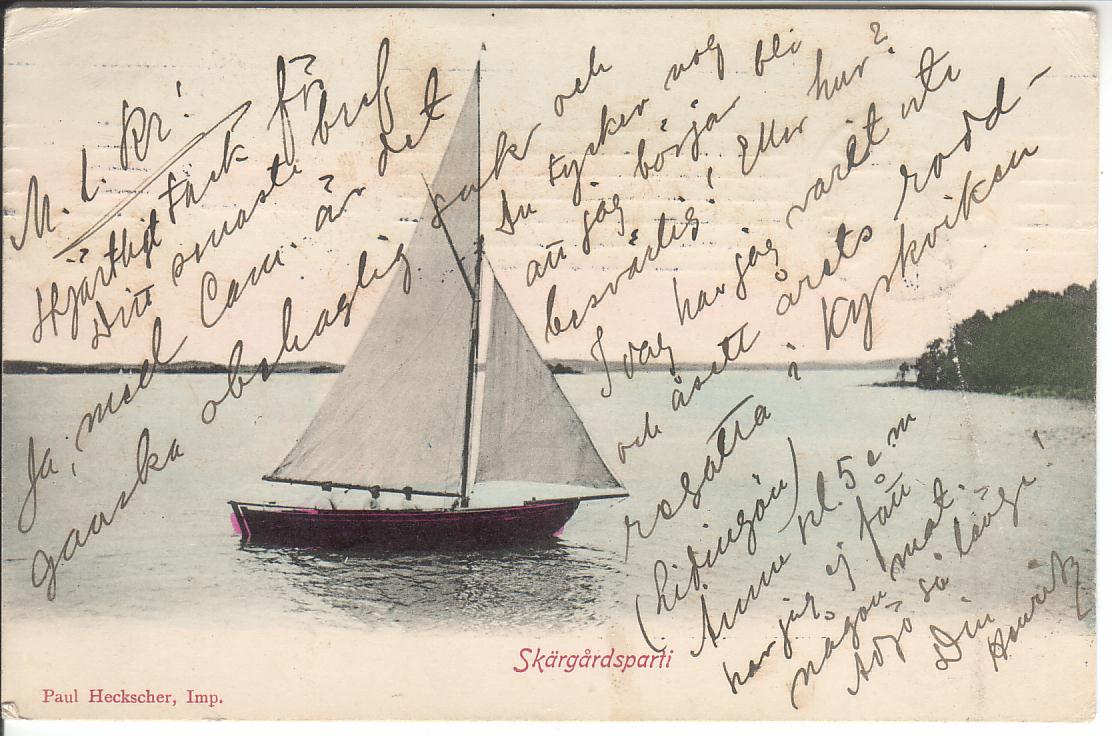 M. L. Kr!
Hjärtligt tack för
Ditt senaste bref
Ja, med Cam. är det
ganska obehaglig sak och
Du tycker nog
att jag börjar bli
besvärlig! Eller hur?
I dag har jag varit ute
och åsett årets rodd-
regatta i Kyrkviken
(Lidingön)
Ännu kl. 5 e m
har jag ej fått
någon mat.
Adjö så länge!
Din
Henrik
Skärgårdsparti
Paul Heckscher, Imp.